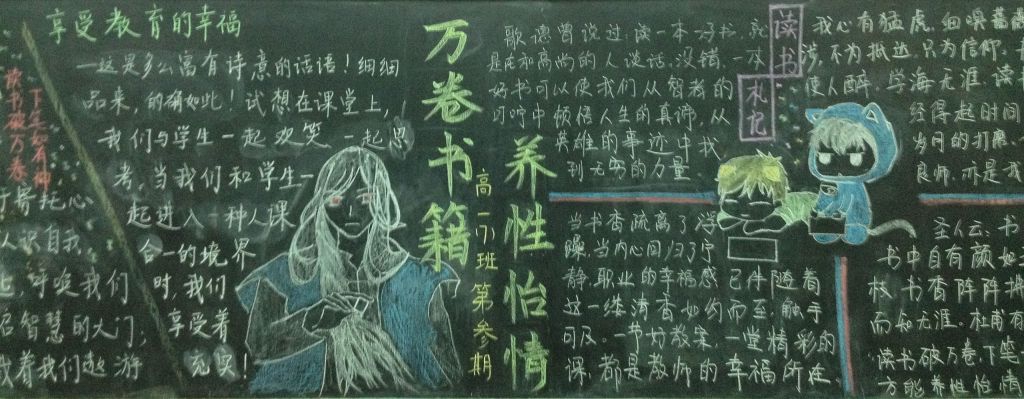 享受教育的幸福
一这是多么富有诗意的话语！细细
品来，的确如此！试想在课堂上，
我们与学生一起欢笑，一起思
考，当我们和学生一
起进入一种人课
合一的境界
时，我们
享受着
充实！
读书破万卷
下笔如有神
行寄托心
认识自我，
呼唤我们
启智慧的大门，
着我们越游
万卷书籍
养性怡情
高一小班第参期
歌德曾说过：读一本好书，就
是在和高尚的人谈话。没错，一本
好书可以使我们从智者的
叮咛中领悟人生的真谛，从
英雄的事迹中找
到无穷的力量。
当书香疏离了浮
躁，当内心回归了宁
静，职业的幸福感已伴随着
这一缕清香如约而至，触手
可及。一节好教案，一堂精彩的
课，都是教师的幸福所在。
读书
札记
我心有猛虎，细嗅蔷薇
涉，不为抵达，只为信仰。
使人醉，学海无涯，读
经得起时间
岁月的打磨，
良师，亦是我
圣人云，书
书中自有颜如
枝，书香阵阵拂
而知无涯。杜甫有
读书破万卷，下笔
方能养性怡情